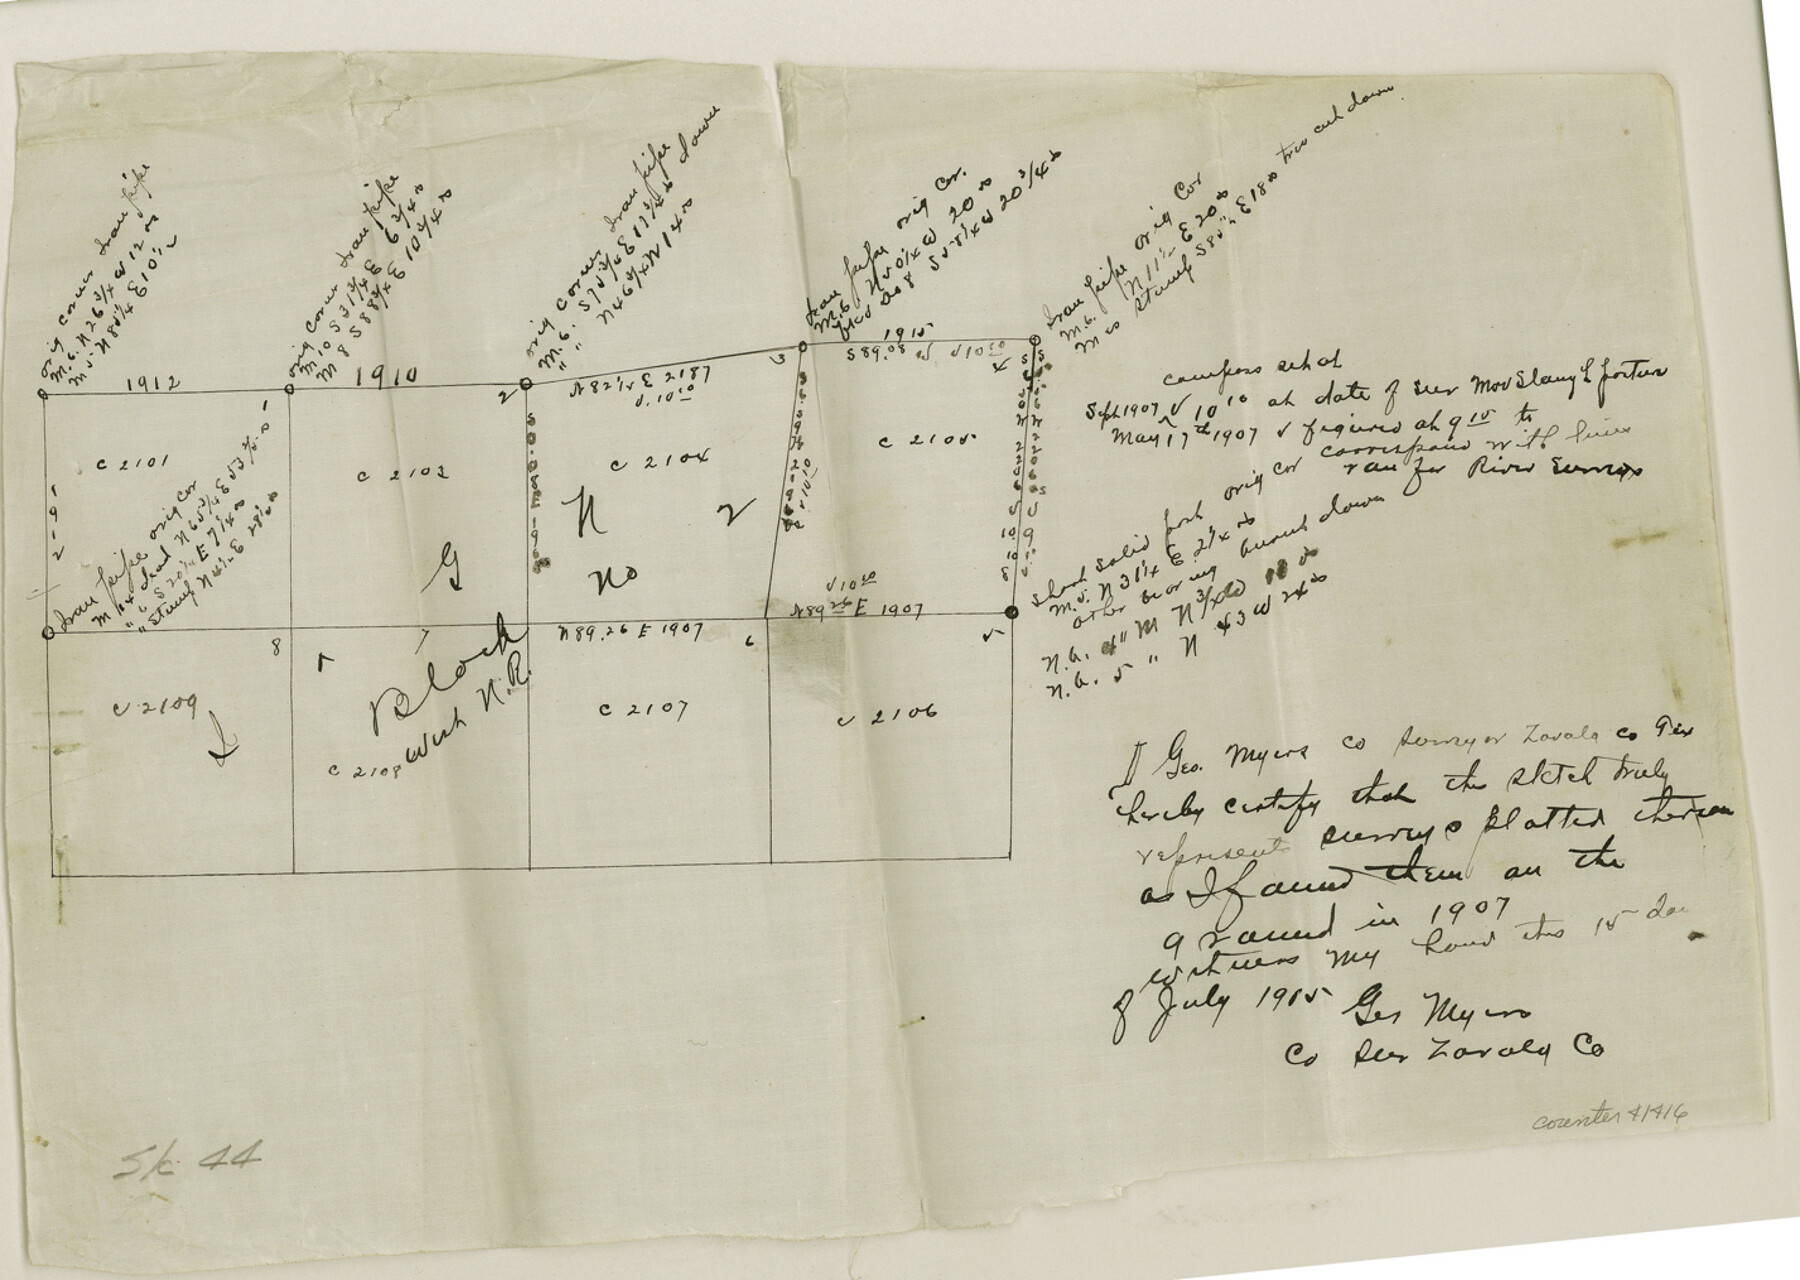 orig corner Iron pipe
M. 6. N 26 3/4 W 12 vs
M 5 N 80 1/4 E 10 1/2
orig corner Iron pipe
M 10 S 31 3/4 E 6 3/4 vs
M 8 S 88 3/4 E 10 3/4 vs
orig corner Iron pipe
M. 6. S 75 3/4 E 17 3/4 vs down
" " N 46 3/4 W 14 vs
Iron pipe orig Cor.
M. 6. W 20 vs
do 8 W 20 3/4 vs
Iron pipe orig Cor
M. 6. N 11 1/2 E 20 vs
M 20 stump S 85 E 18 vs tree cut down
1912
1910
N 82 1/2 E 2187
V. 10 10
1915
S 89.08
V 10 30
1
2
3
4
C 2101
C 2102
C 2104
C 2105
1912
Iron pipe orig cor
M 14 dead N 65 3/4 E 53 1/2 vs
" S 20 1/2 E 7 1/4 vs
" stump N 41 E 28 vs
G N 2
No
Block
with N. R.
8
7
N 89.26 E 1907
6
V 10 00
N 89 26 E 1907
5
C 2109
C 2108
C 2107
C 2106
compass set at
Sept 1907 V 10 10 at date of sur
May 17th 1907 V figured at 9 15 to
correspond with lines
ran for River Surveys
short solid post orig cor
M. 5. N 31 1/4 E 2 1/4 vs
other bearing burnt down
N. B. 4" M N 3/4 W 10 vs
N. B. 5 " N 43 W 24 vs
I Geo. Myers Co Surveyor Zavala Co Tex
hereby certify that the sketch truly
represents surveys platted thereon
as I found them on the
ground in 1907
witness my hand this 15 day
of July 1915 Geo Myers
Co Sur Zavala Co
Sk. 44
counter 41416